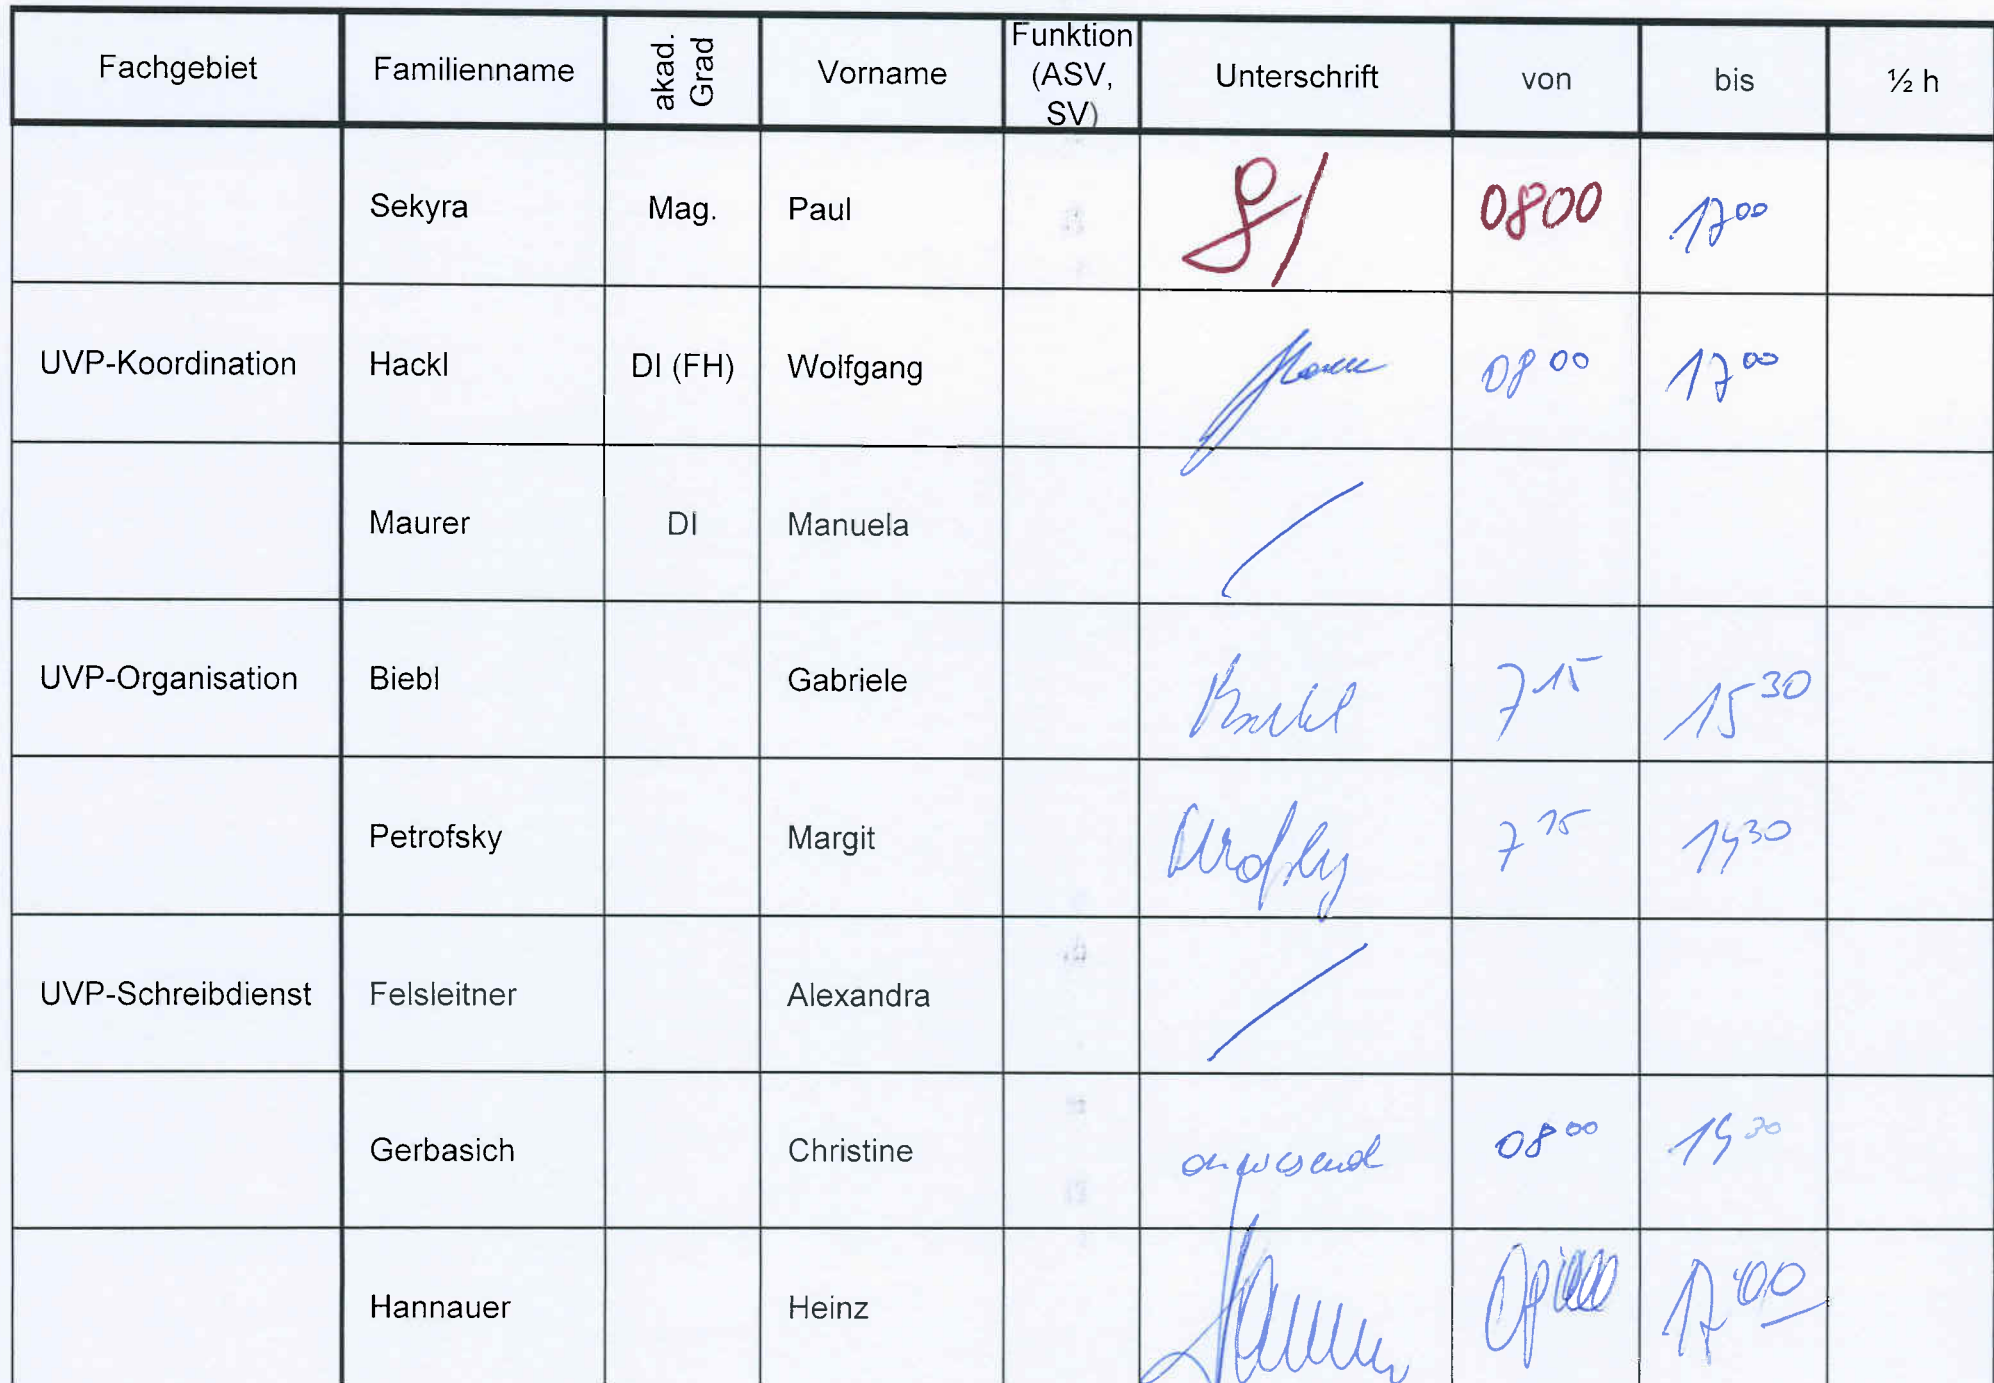 Fachgebiet Familienname akad. Grad Vorname Funktion (ASV, SV) Unterschrift von bis ½ h
Sekyra Mag. Paul 0800 17⁰⁰
UVP-Koordination Hackl DI (FH) Wolfgang 08⁰⁰ 17⁰⁰
Maurer DI Manuela
UVP-Organisation Biebl Gabriele 7¹⁵ 15³⁰
Petrofsky Margit 7¹⁵
UVP-Schreibdienst Felsleitner Alexandra
Gerbasich Christine anwesend 08⁰⁰
Hannauer Heinz 17⁰⁰